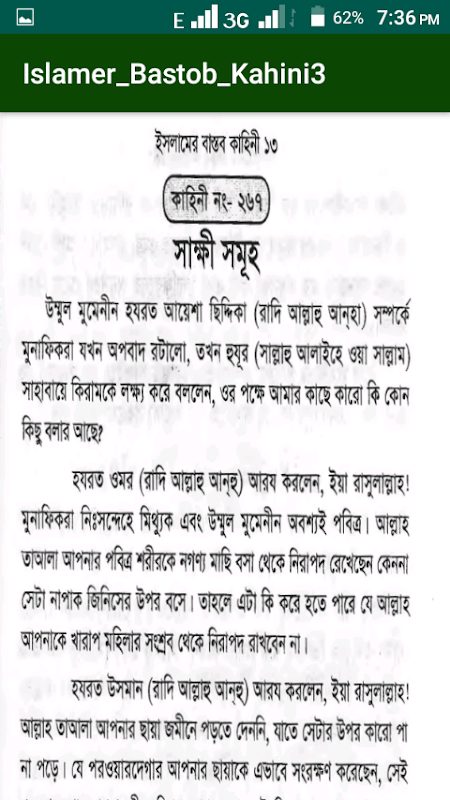 E 3G 62% 7:36 PM
Islamer_Bastob_Kahini3
ইসলামের বাস্তব কাহিনী ১৩
কাহিনী নং- ২৬৭
সাক্ষী সমূহ
উম্মুল মুমেনীন হযরত আয়েশা ছিদ্দিকা (রাদি আল্লাহু আন্‌হা) সম্পর্কে
মুনাফিকরা যখন অপবাদ রটালো, তখন হুযুর (সাল্লাহু আলাইহে ওয়া সাল্লাম)
সাহাবায়ে কিরামকে লক্ষ্য করে বললেন, ওর পক্ষে আমার কাছে কারো কি কোন
কিছু বলার আছে?
হযরত ওমর (রাদি আল্লাহু আন্‌হু) আরয করলেন, ইয়া রাসুলাল্লাহ!
মুনাফিকরা নিঃসন্দেহে মিথ্যুক এবং উম্মুল মুমেনীন অবশ্যই পবিত্র। আল্লাহ
তাআলা আপনার পবিত্র শরীরকে নগণ্য মাছি বসা থেকে নিরাপদ রেখেছেন কেননা
সেটা নাপাক জিনিসের উপর বসে। তাহলে এটা কি করে হতে পারে যে আল্লাহ
আপনাকে খারাপ মহিলার সংশ্রব থেকে নিরাপদ রাখবেন না।
হযরত উসমান (রাদি আল্লাহু আন্‌হু) আরয করলেন, ইয়া রাসুলাল্লাহ!
আল্লাহ তাআলা আপনার ছায়া জমীনে পড়তে দেননি, যাতে সেটার উপর কারো পা
না পড়ে। যে পরওয়ারদেগার আপনার ছায়াকে এভাবে সংরক্ষণ করেছেন, সেই